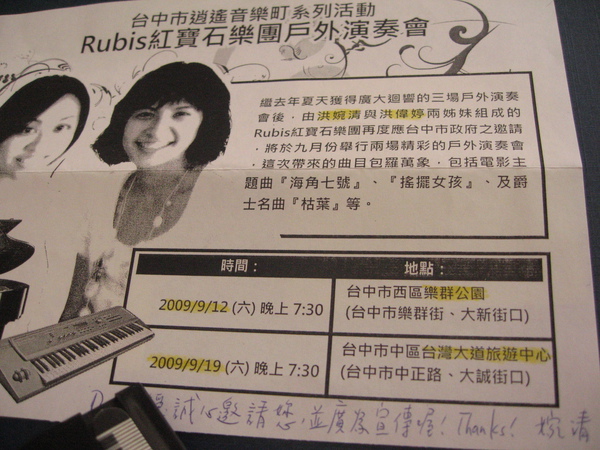 台中市逍遙音樂町系列活動
Rubis紅寶石樂團戶外演奏會
繼去年夏天獲得廣大迴響的三場戶外演奏
會後，由洪婉清與洪偉婷兩姊妹組成的
Rubis紅寶石樂團再度應台中市政府之邀請
，將於九月份舉行兩場精彩的戶外演奏會
，這次帶來的曲目包羅萬象，包括電影主
題曲『海角七號』、『搖擺女孩』、及爵
士名曲『枯葉』等。
時間： 地點：
2009/9/12 (六) 晚上 7:30 台中市西區樂群公園
(台中市樂群街、大新街口)
2009/9/19 (六) 晚上 7:30 台中市中區台灣大道旅遊中心
(台中市中正路、大誠街口)
誠心邀請您，並廣為宣傳喔！Thanks! 婉清